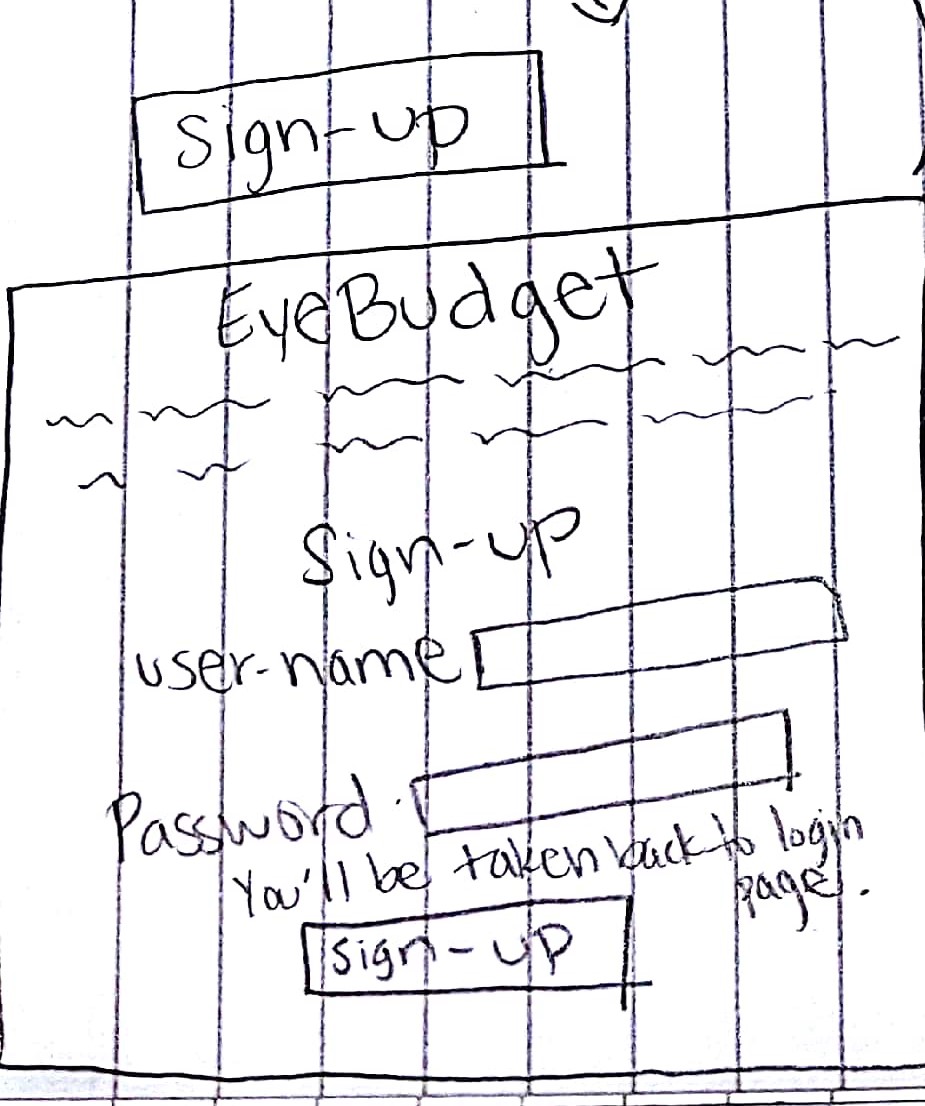 Sign-up
EyeBudget
Sign-up
user-name
Password
You'll be taken back to login
page.
sign-up